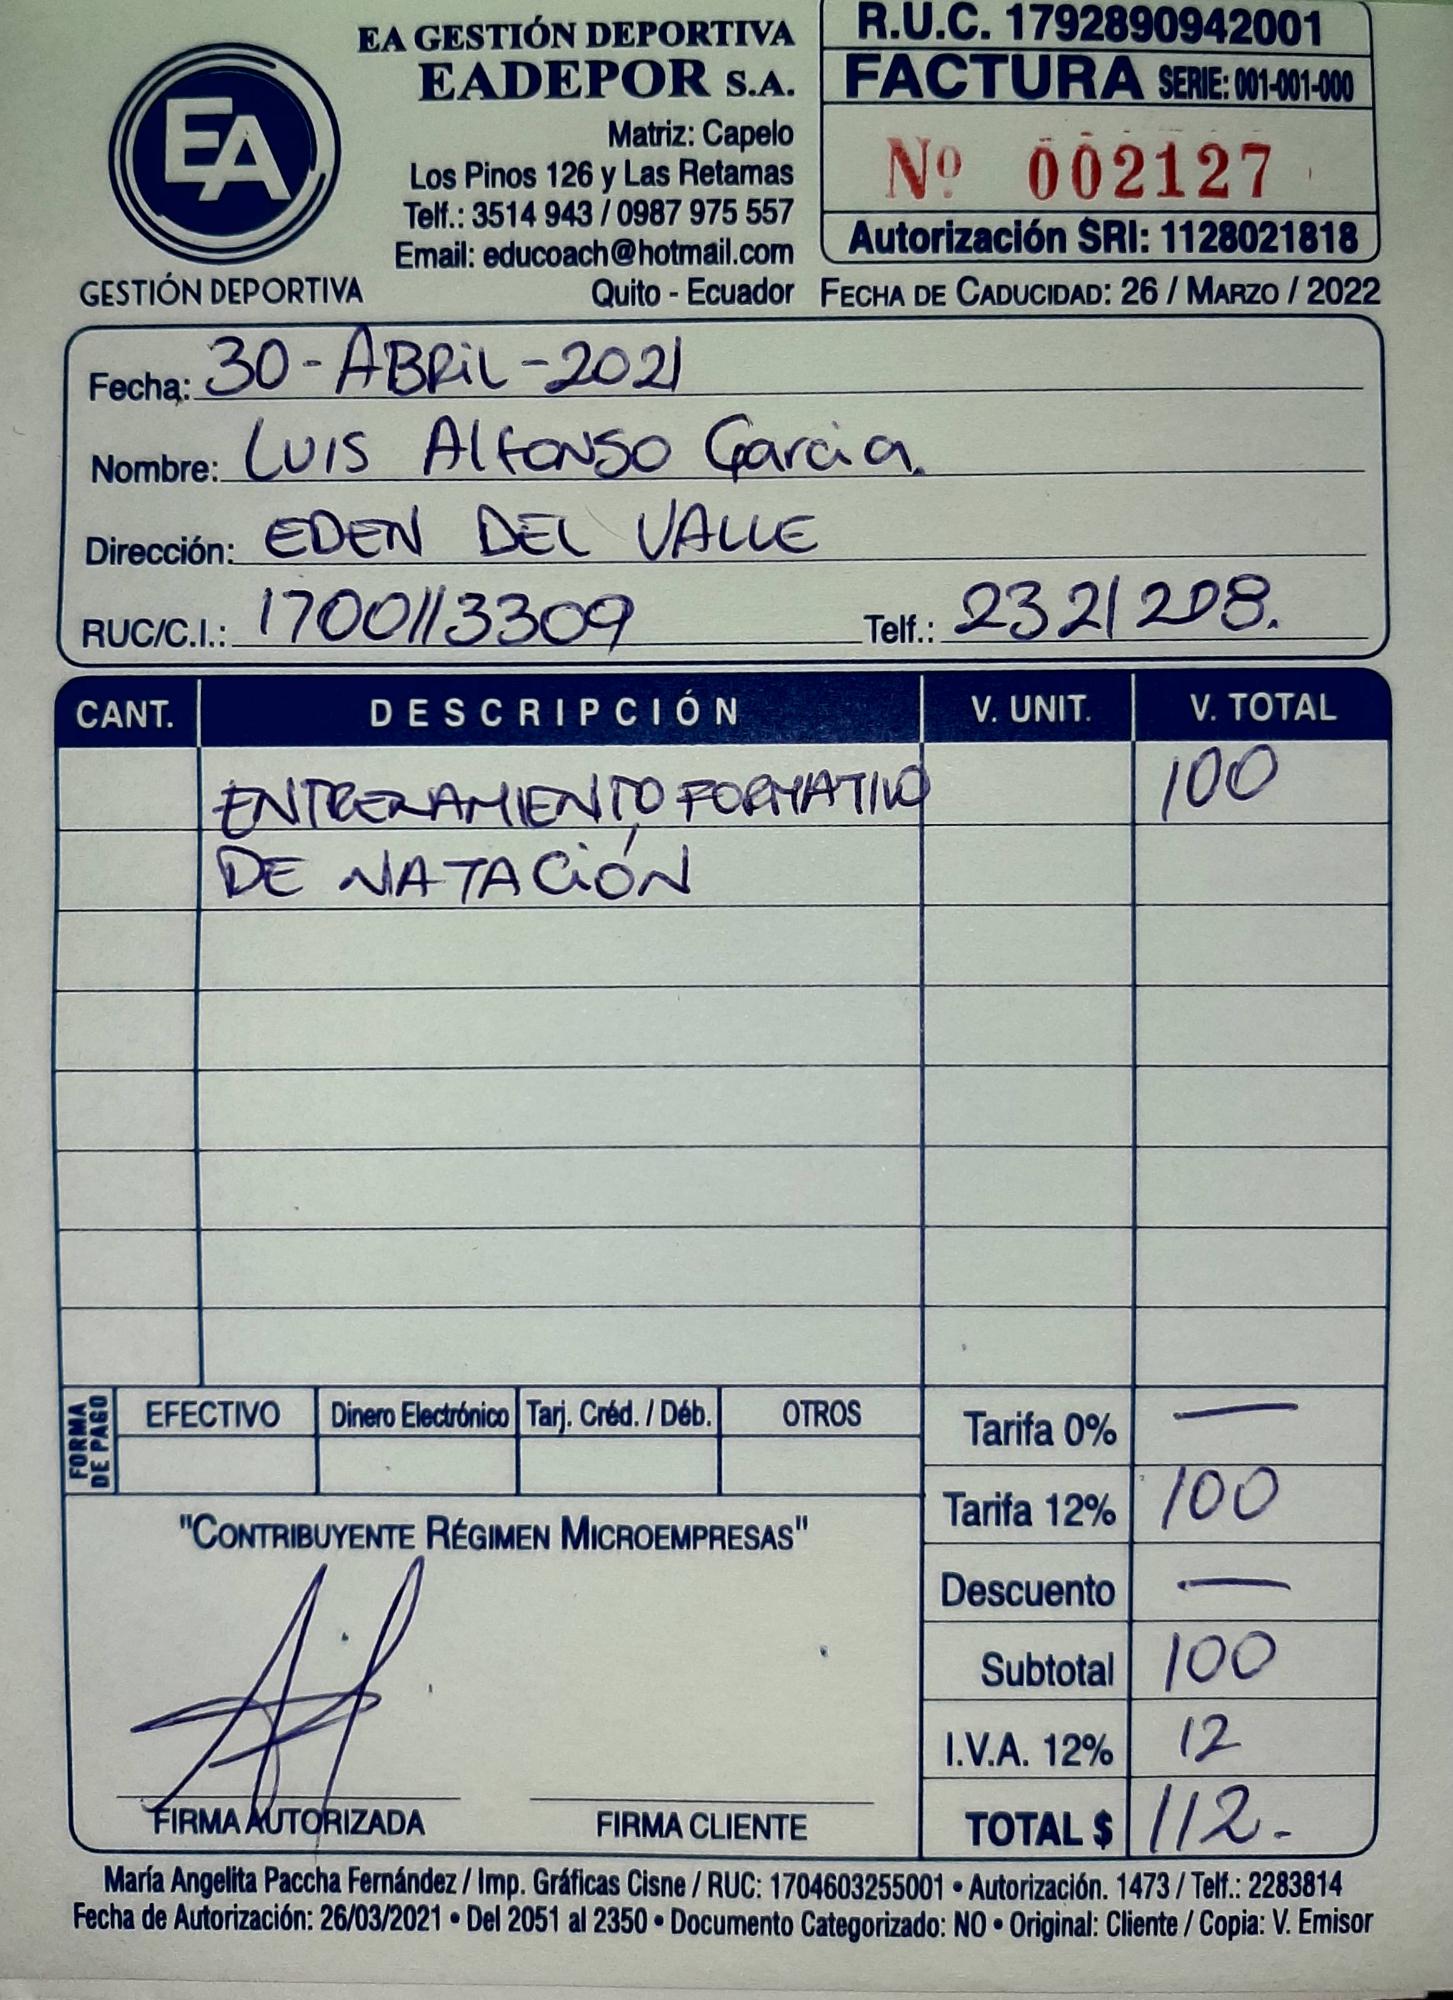 EA GESTIÓN DEPORTIVA
EADEPOR S.A.
Matriz: Capelo
Los Pinos 126 y Las Retamas
Telf.: 3514 943 / 0987 975 557
Email: educoach@hotmail.com
Quito - Ecuador
EA
GESTIÓN DEPORTIVA
R.U.C. 1792890942001
FACTURA SERIE: 001-001-000
Nº 002127
Autorización SRI: 1128021818
FECHA DE CADUCIDAD: 26 / MARZO / 2022
Fecha: 30-ABRiL-2021
Nombre: LUIS Alfonso Garcia.
Dirección: EDEN DEL VALLE
RUC/C.I.: 1700113309 Telf.: 2321208.
CANT. DESCRIPCIÓN V. UNIT. V. TOTAL
ENTRENAMIENTO FORMATIVO 100
DE NATACiÓN
FORMA DE PAGO
EFECTIVO Dinero Electrónico Tarj. Créd. / Déb. OTROS
Tarifa 0% —
Tarifa 12% 100
Descuento —
Subtotal 100
I.V.A. 12% 12
TOTAL $ 112.-
"CONTRIBUYENTE RÉGIMEN MICROEMPRESAS"
FIRMA AUTORIZADA FIRMA CLIENTE
María Angelita Paccha Fernández / Imp. Gráficas Cisne / RUC: 1704603255001 • Autorización. 1473 / Telf.: 2283814
Fecha de Autorización: 26/03/2021 • Del 2051 al 2350 • Documento Categorizado: NO • Original: Cliente / Copia: V. Emisor